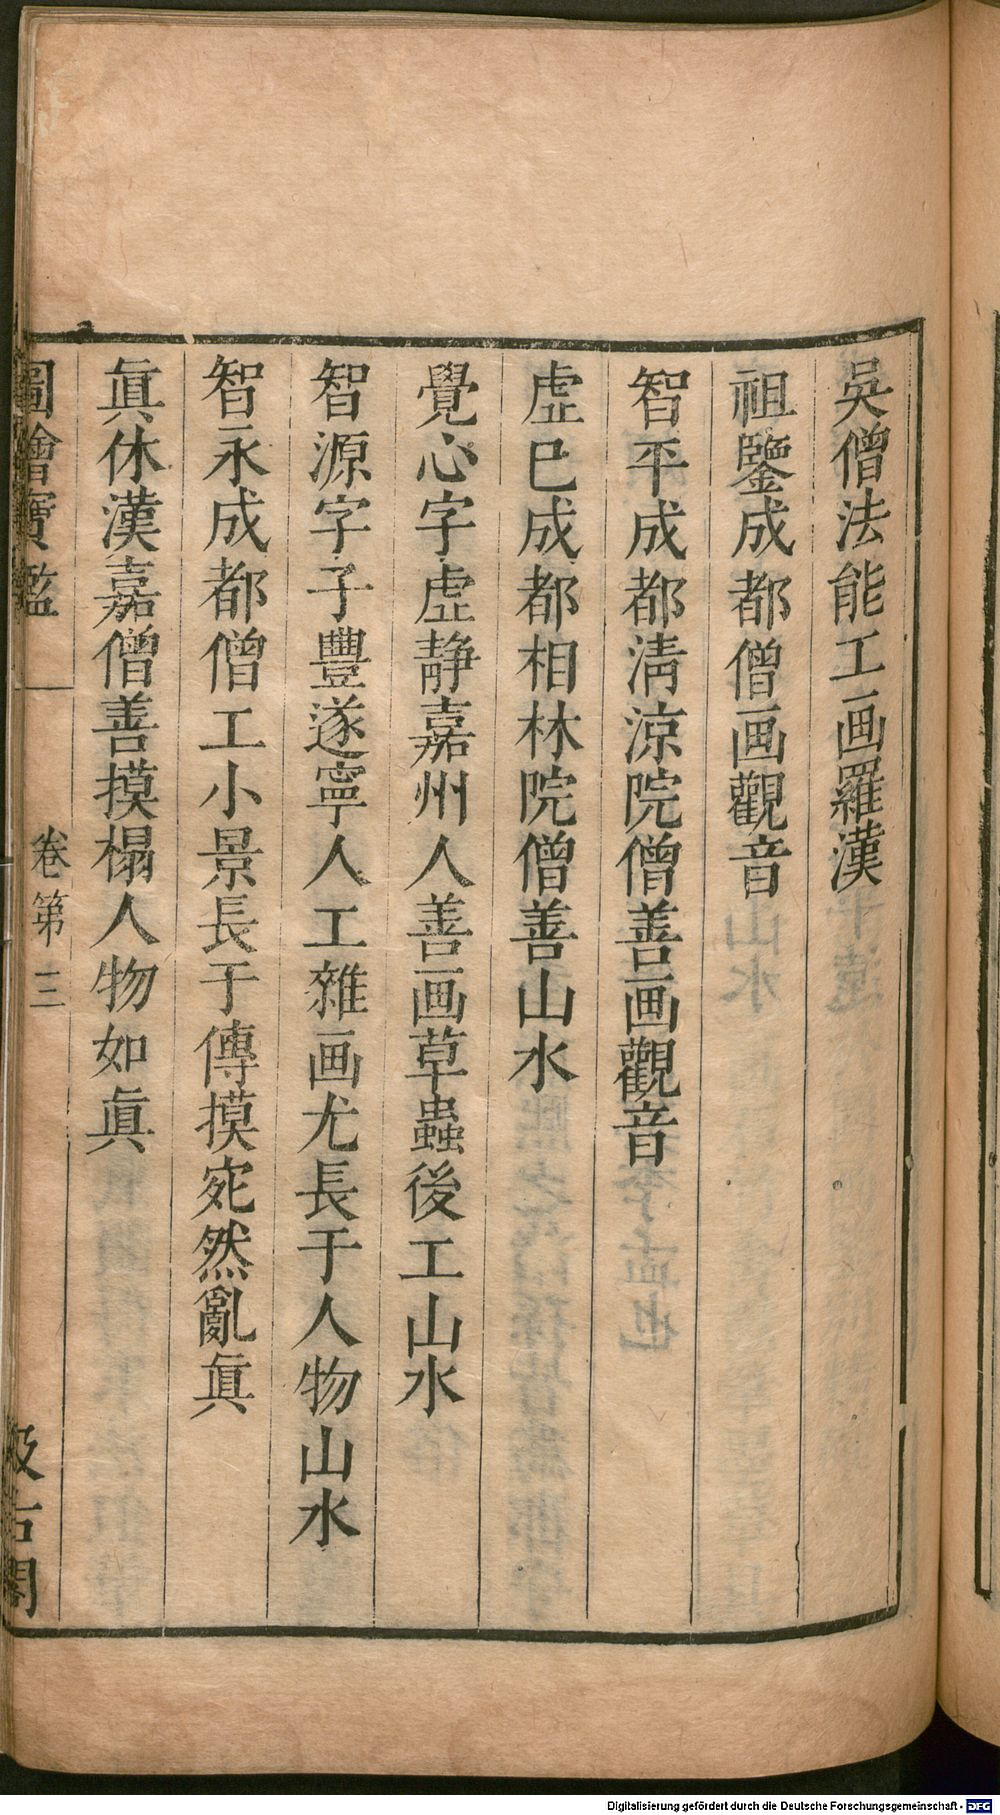 吳僧法能工画羅漢
祖鑒成都僧画觀音
智平成都淸涼院僧善画觀音
虛巳成都相林院僧善山水
覺心字虛静嘉州人善画草蟲後工山水
智源字子豐遂寧人工雜画尤長于人物山水
智永成都僧工小景長于傳摸宛然亂眞
眞休漢嘉僧善摸榻人物如眞
圖繪寶鑑 卷第三 汲古閣
Digitalisierung gefördert durch die Deutsche Forschungsgemeinschaft - DFG